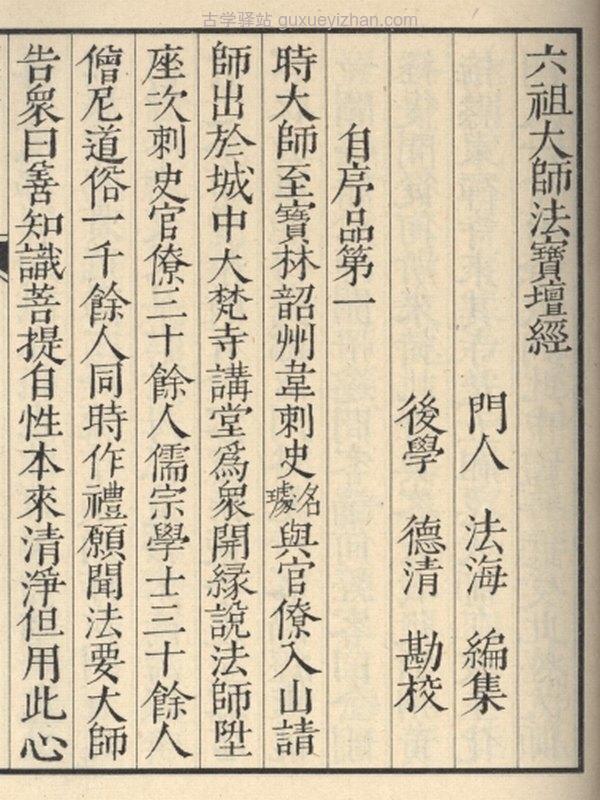 古学驿站 guxueyizhan.com
六祖大師法寶壇經
門人 法海 編集
後學 德清 勘校
自序品第一
時大師至寶林韶州韋刺史名璩與官僚入山請
師出於城中大梵寺講堂爲衆開緣說法師陞
座次刺史官僚三十餘人儒宗學士三十餘人
僧尼道俗一千餘人同時作禮願聞法要大師
告衆曰善知識菩提自性本來清淨但用此心